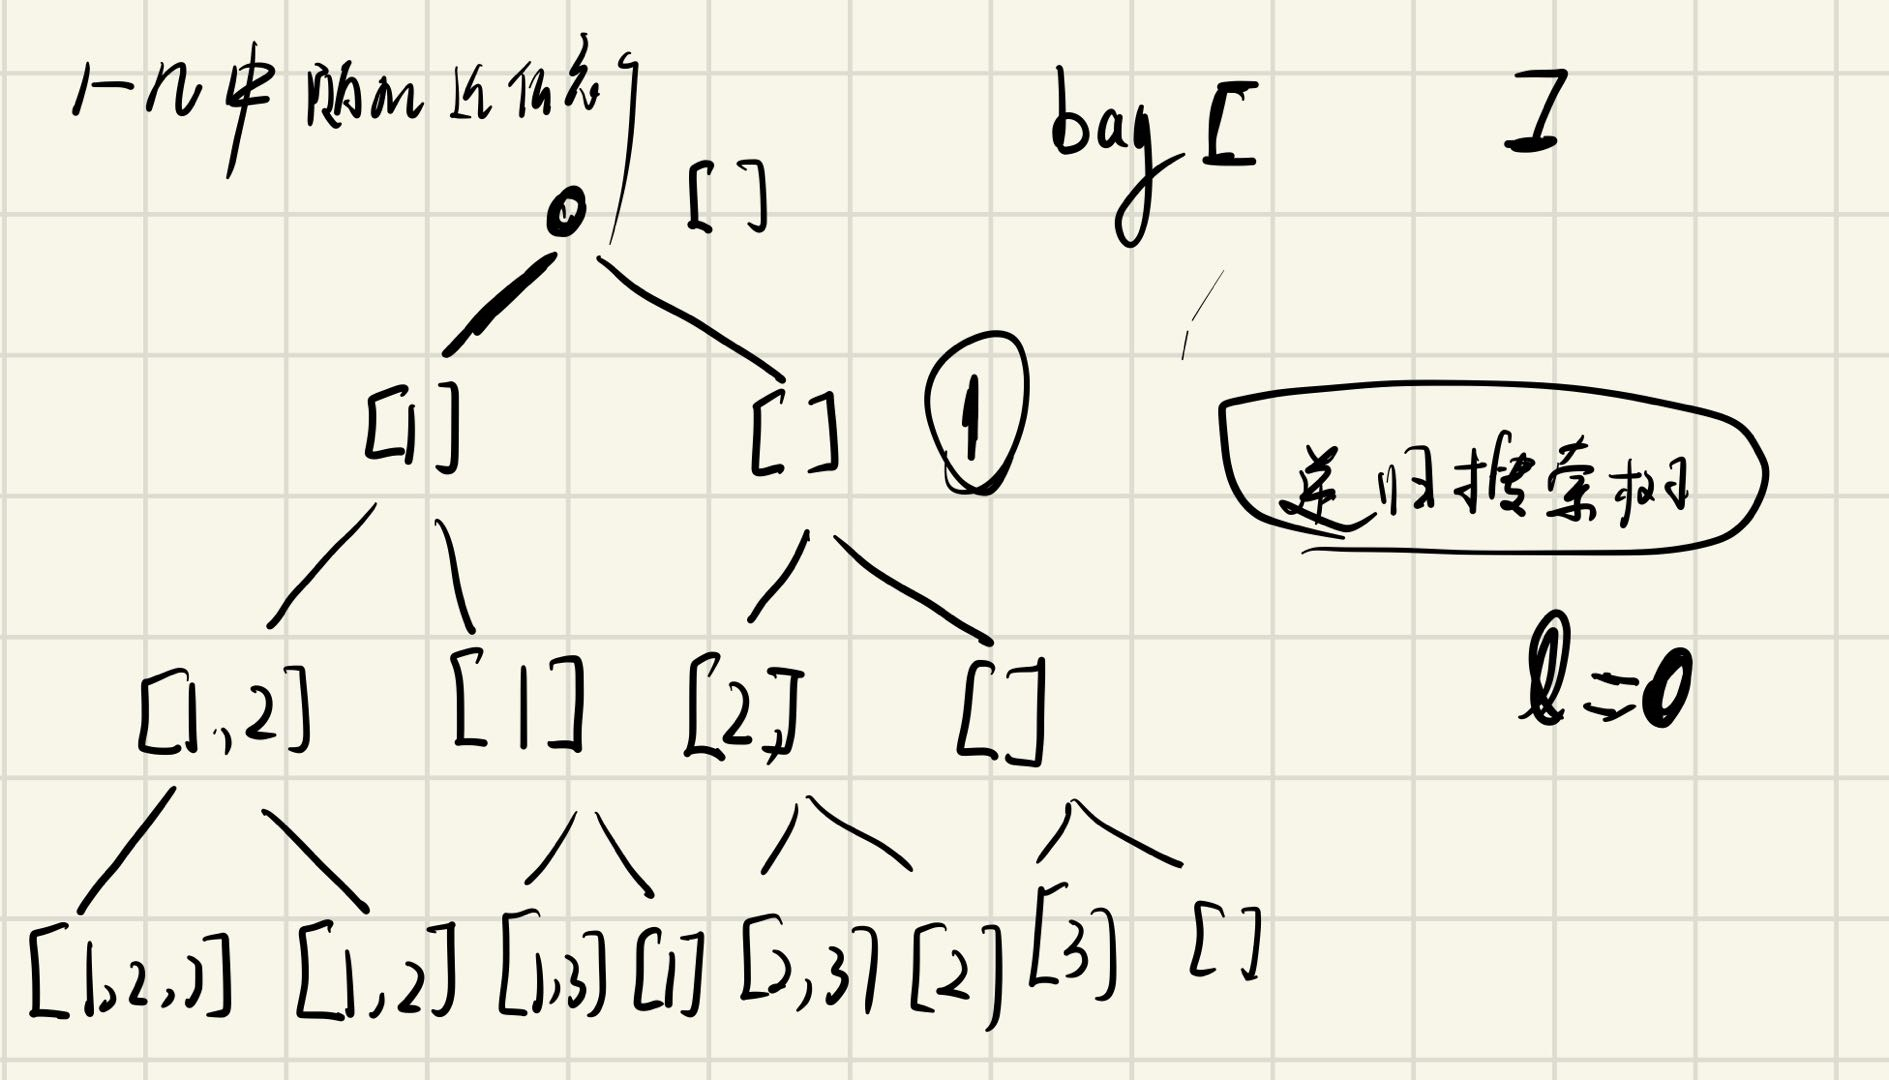 1-n中随机选任意个
bag [ ]
0 []
[1] [] 1
递归搜索树
[1,2] [1] [2] []
l=0
[1,2,3] [1,2] [1,3] [1] [2,3] [2] [3] []